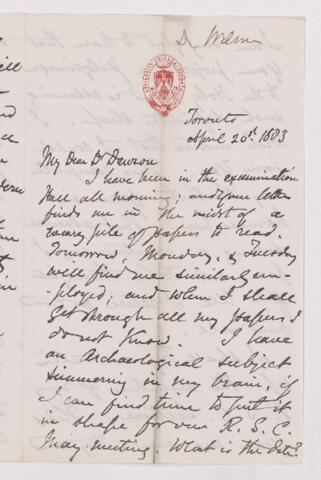 Dr Wilson
Toronto
April 20th 1883
My Dear Dr Dawson
I have been in the examination
Hall all morning; and your letter
finds me in the midst of a
weary pile of papers to read.
Tomorrow, Monday, & Tuesday
will find me similarly em-
ployed; and when I shall
get through all my papers I
do not know. I have
an Archaeological subject
simmering in my brain, if
I can find time to put it
in shape for our R. S. C.
May meeting. What is the date?